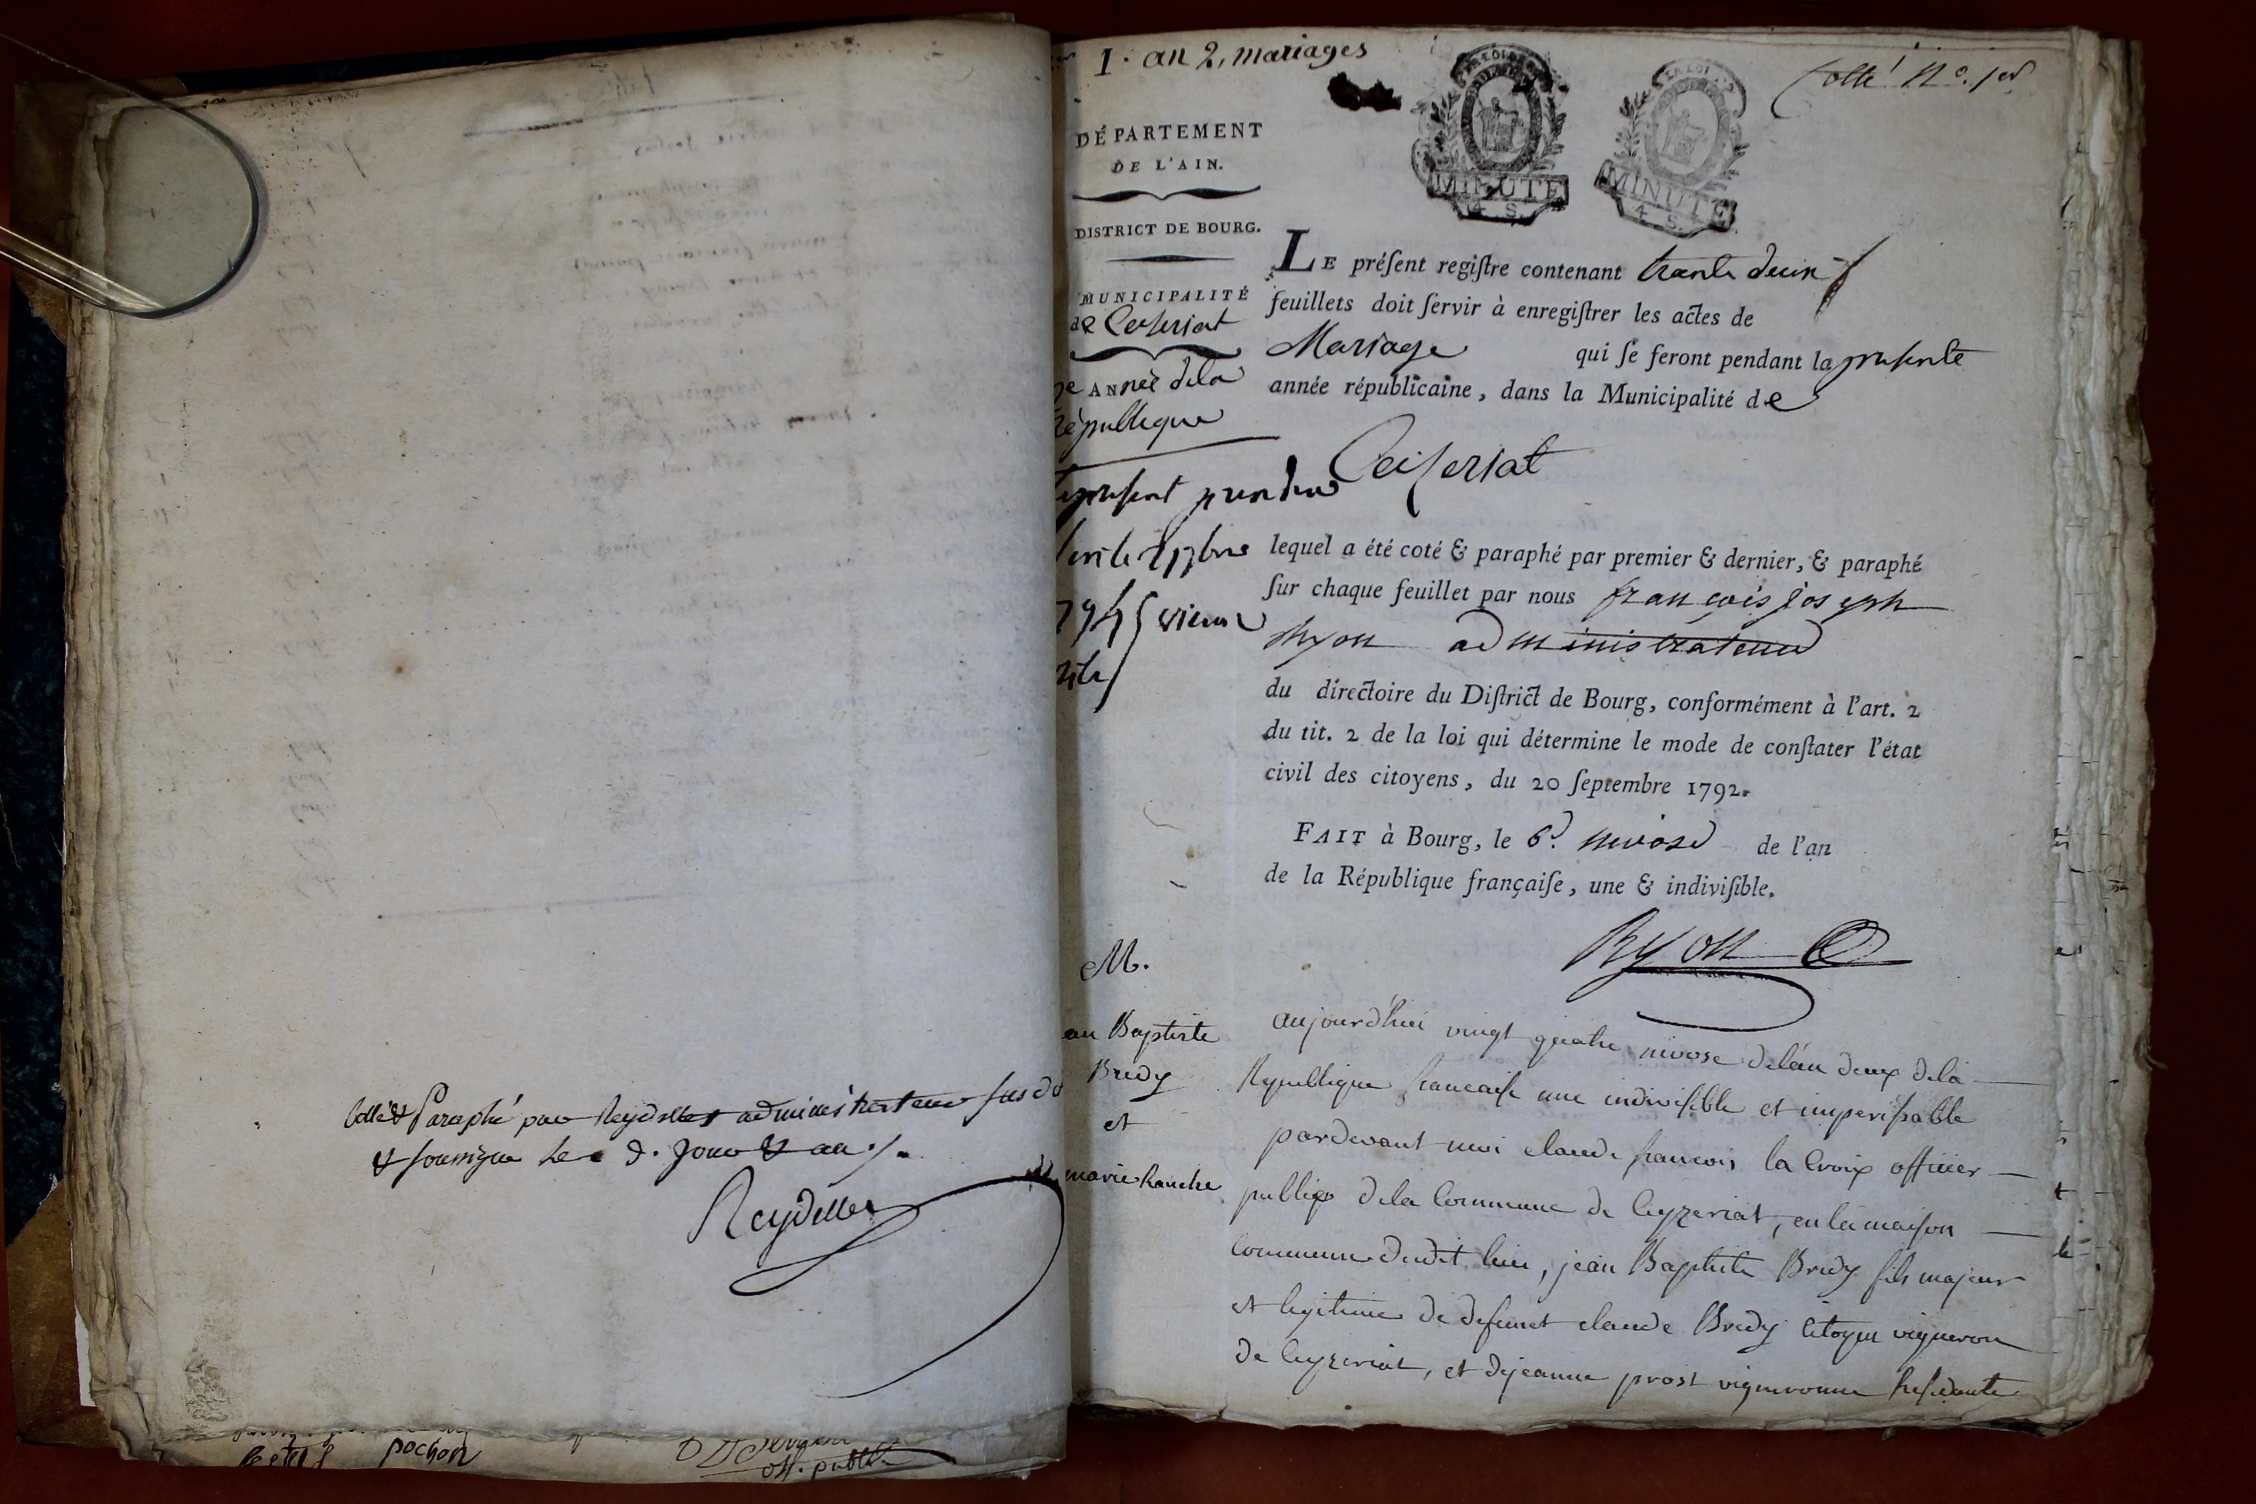 Cotté & Paraphé par Reydellet administrateur susdt
& soussigné le d. jour & an
Reydellet
pochon
off. public
1. an 2, mariages
Cotté N.o 1er
DÉPARTEMENT
DE L'AIN.
DISTRICT DE BOURG.
MUNICIPALITÉ
de Ceiseriat
ANNéE de la
république
MINUTE
4 S.
MINUTE
4 S.
LE préſent regiſtre contenant trante deux
feuillets doit ſervir à enregiſtrer les actes de
Mariage qui ſe feront pendant la presente
année républicaine, dans la Municipalité de
Ceiseriat
lequel a été coté & paraphé par premier & dernier, & paraphé
ſur chaque feuillet par nous françois joseph
Ryon administrateur
du directoire du Diſtrict de Bourg, conformément à l'art. 2
du tit. 2 de la loi qui détermine le mode de conſtater l'état
civil des citoyens, du 20 ſeptembre 1792.
FAIT à Bourg, le 6.e nivose de l'an
de la République françaiſe, une & indiviſible.
Ryon
M.
an Baptiste
Bredy
et
marie hanche
aujourd'hui vingt quatre nivose de l'an deux de la
Republique francaise une indivisible et imperissable
pardevant moi claude francois la Croix officier
publiq de la Commune de Ceyzeriat, en la maison
Commune dudit lieu, jean Baptiste Bredy fils majeur
et legitime de defunct claude Bredy Citoyen vigneron
de Ceyzeriat, et de jeanne prost vigneronne residante